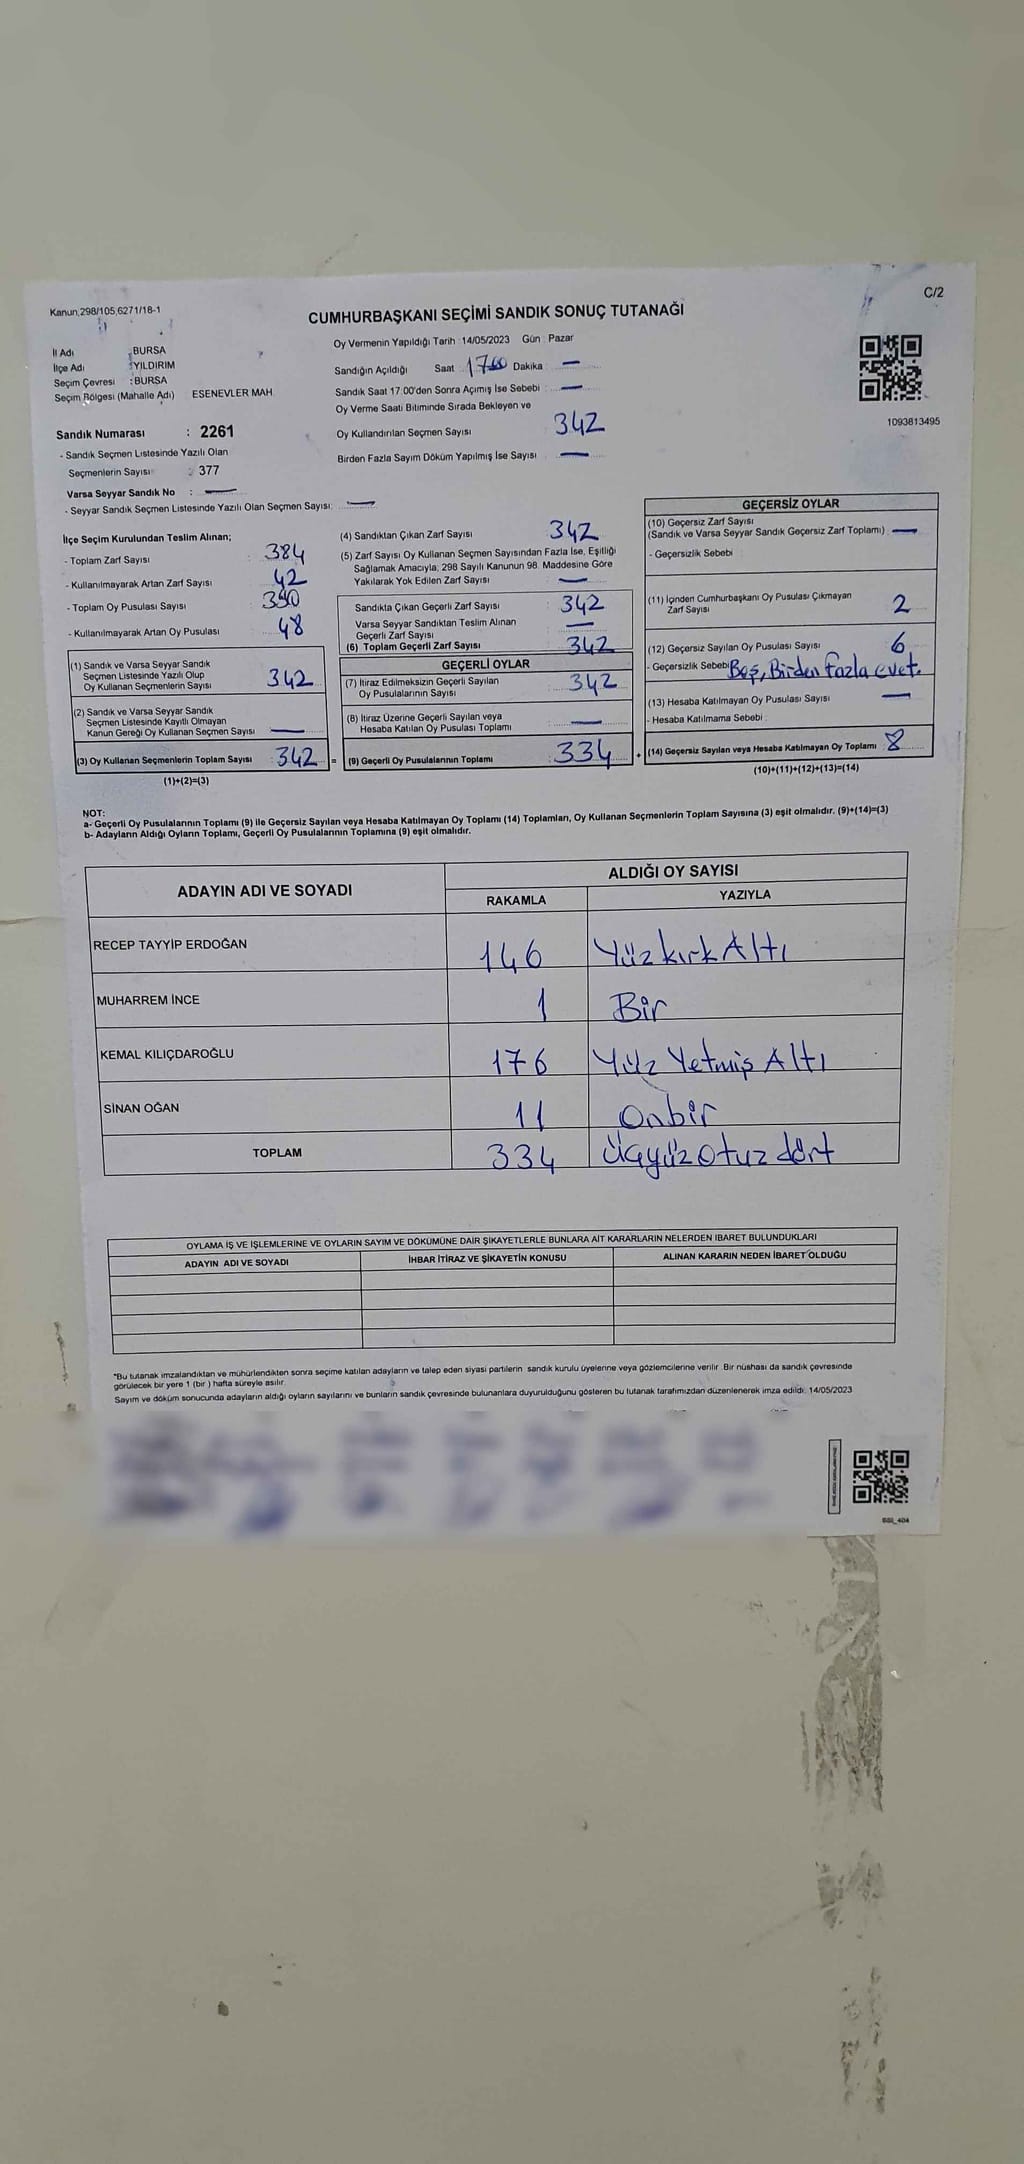 Kanun,298/105,6271/18-1
C/2
CUMHURBAŞKANI SEÇİMİ SANDIK SONUÇ TUTANAĞI
İl Adı : BURSA
İlçe Adı : YILDIRIM
Seçim Çevresi : BURSA
Seçim Bölgesi (Mahalle Adı) ESENEVLER MAH
Sandık Numarası : 2261
- Sandık Seçmen Listesinde Yazılı Olan
Seçmenlerin Sayısı : 377
Varsa Seyyar Sandık No : —
- Seyyar Sandık Seçmen Listesinde Yazılı Olan Seçmen Sayısı: —
Oy Vermenin Yapıldığı Tarih : 14/05/2023 Gün : Pazar
Sandığın Açıldığı Saat : 1700 Dakika : —
Sandık Saat 17:00'den Sonra Açımış İse Sebebi : —
Oy Verme Saati Bitiminde Sırada Bekleyen ve
Oy Kullandırılan Seçmen Sayısı 342
Birden Fazla Sayım Döküm Yapılmış İse Sayısı —
1093813495
İlçe Seçim Kurulundan Teslim Alınan;
- Toplam Zarf Sayısı : 384
- Kullanılmayarak Artan Zarf Sayısı : 42
- Toplam Oy Pusulası Sayısı : 390
- Kullanılmayarak Artan Oy Pusulası : 48
(1) Sandık ve Varsa Seyyar Sandık
Seçmen Listesinde Yazılı Olup
Oy Kullanan Seçmenlerin Sayısı : 342
(2) Sandık ve Varsa Seyyar Sandık
Seçmen Listesinde Kayıtlı Olmayan
Kanun Gereği Oy Kullanan Seçmen Sayısı : —
(3) Oy Kullanan Seçmenlerin Toplam Sayısı : 342 =
(1)+(2)=(3)
(4) Sandıktan Çıkan Zarf Sayısı : 342
(5) Zarf Sayısı Oy Kullanan Seçmen Sayısından Fazla İse, Eşitliği
Sağlamak Amacıyla; 298 Sayılı Kanunun 98. Maddesine Göre
Yakılarak Yok Edilen Zarf Sayısı : —
Sandıkta Çıkan Geçerli Zarf Sayısı : 342
Varsa Seyyar Sandıktan Teslim Alınan
Geçerli Zarf Sayısı : —
(6) Toplam Geçerli Zarf Sayısı : 342
GEÇERLİ OYLAR
(7) İtiraz Edilmeksizin Geçerli Sayılan
Oy Pusulalarının Sayısı : 342
(8) İtiraz Üzerine Geçerli Sayılan veya
Hesaba Katılan Oy Pusulası Toplamı : —
(9) Geçerli Oy Pusulalarının Toplamı : 334 +
GEÇERSİZ OYLAR
(10) Geçersiz Zarf Sayısı
(Sandık ve Varsa Seyyar Sandık Geçersiz Zarf Toplamı) : —
- Geçersizlik Sebebi :
(11) İçinden Cumhurbaşkanı Oy Pusulası Çıkmayan
Zarf Sayısı 2
(12) Geçersiz Sayılan Oy Pusulası Sayısı : 6
- Geçersizlik Sebebi Boş, Birden fazla evet.
(13) Hesaba Katılmayan Oy Pusulası Sayısı : —
- Hesaba Katılmama Sebebi :
(14) Geçersiz Sayılan veya Hesaba Katılmayan Oy Toplamı : 8
(10)+(11)+(12)+(13)=(14)
NOT:
a- Geçerli Oy Pusulalarının Toplamı (9) ile Geçersiz Sayılan veya Hesaba Katılmayan Oy Toplamı (14) Toplamları, Oy Kullanan Seçmenlerin Toplam Sayısına (3) eşit olmalıdır. (9)+(14)=(3)
b- Adayların Aldığı Oyların Toplamı, Geçerli Oy Pusulalarının Toplamına (9) eşit olmalıdır.
ADAYIN ADI VE SOYADI ALDIĞI OY SAYISI
RAKAMLA YAZIYLA
RECEP TAYYİP ERDOĞAN 146 Yüz kırk Altı
MUHARREM İNCE 1 Bir
KEMAL KILIÇDAROĞLU 176 Yüz Yetmiş Altı
SİNAN OĞAN 11 Onbir
TOPLAM 334 Üçyüz otuz dört
OYLAMA İŞ VE İŞLEMLERİNE VE OYLARIN SAYIM VE DÖKÜMÜNE DAİR ŞİKAYETLERLE BUNLARA AİT KARARLARIN NELERDEN İBARET BULUNDUKLARI
ADAYIN ADI VE SOYADI İHBAR İTİRAZ VE ŞİKAYETİN KONUSU ALINAN KARARIN NEDEN İBARET OLDUĞU
*Bu tutanak imzalandıktan ve mühürlendikten sonra seçime katılan adayların ve talep eden siyasi partilerin sandık kurulu üyelerine veya gözlemcilerine verilir. Bir nüshası da sandık çevresinde
görülecek bir yere 1 (bir ) hafta süreyle asılır.
Sayım ve döküm sonucunda adayların aldığı oyların sayılarını ve bunların sandık çevresinde bulunanlara duyurulduğunu gösteren bu tutanak tarafımızdan düzenlenerek imza edildi. 14/05/2023